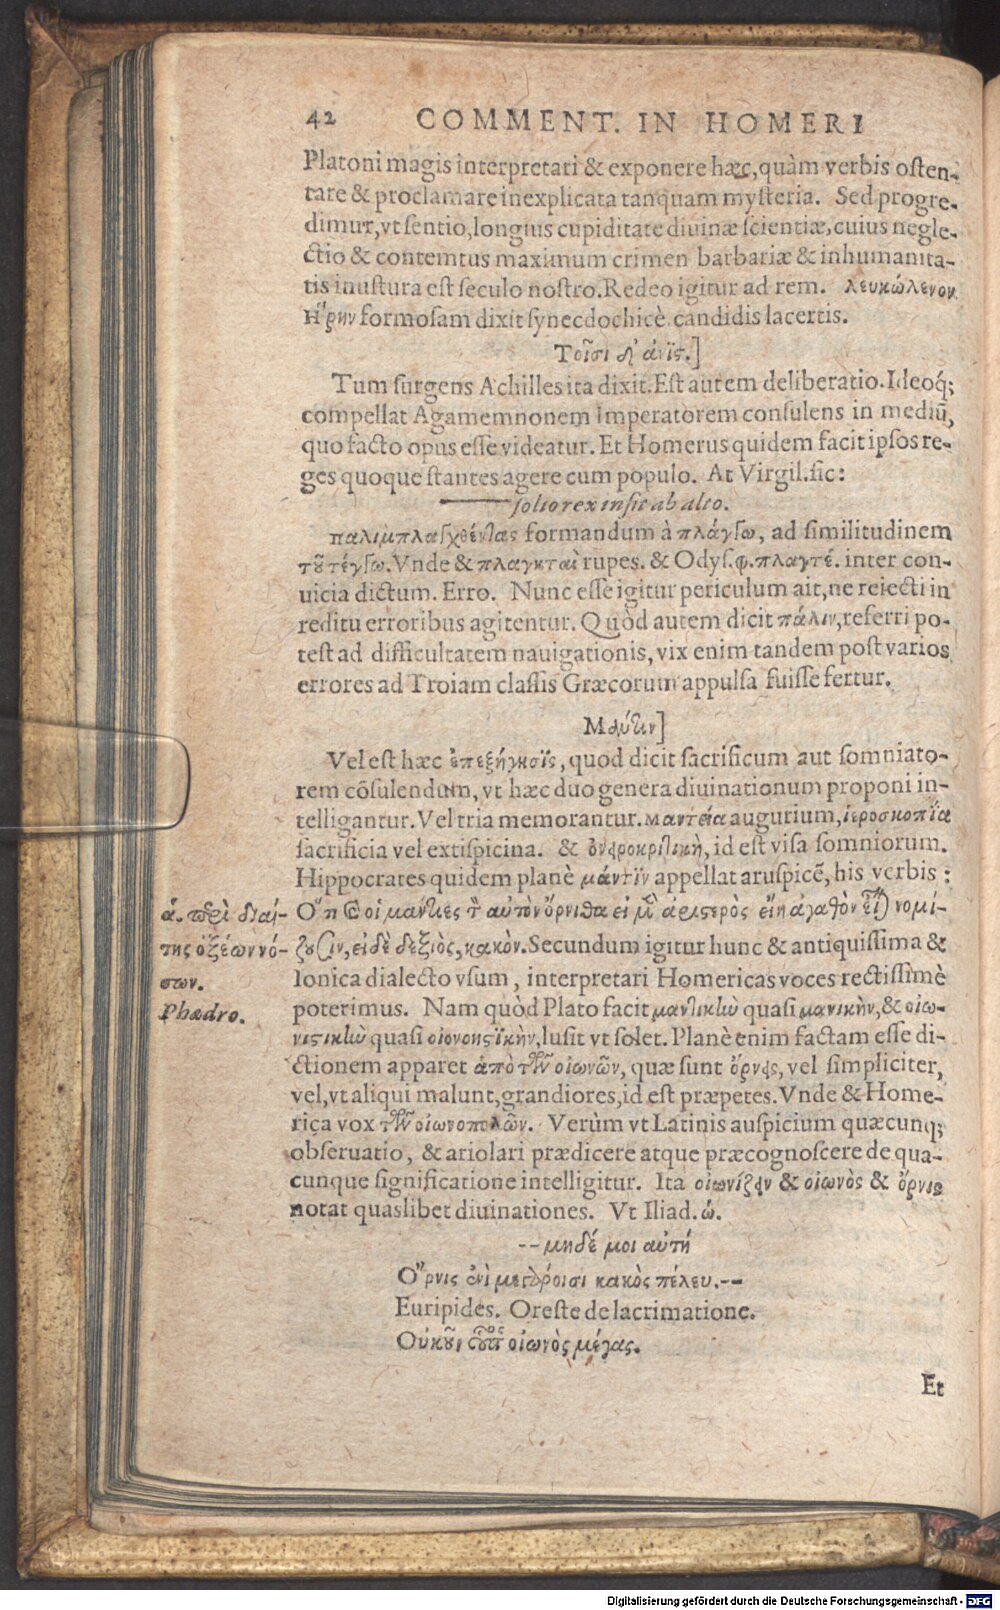 42 COMMENT. IN HOMERI
Platoni magis interpretari & exponere hæc, quàm verbis osten-
tare & proclamare inexplicata tanquam mysteria. Sed progre-
dimur, vt sentio, longius cupiditate diuinæ scientiæ, cuius negle-
ctio & contemtus maximum crimen barbariæ & inhumanita-
tis inustura est seculo nostro. Redeo igitur ad rem. λευκώλενον
Ηʹρην formosam dixit synecdochicè candidis lacertis.
Τοῖσι δ' ἀνις.]
Tum surgens Achilles ita dixit. Est autem deliberatio. Ideoq́;
compellat Agamemnonem Imperatorem consulens in mediũ,
quo facto opus esse videatur. Et Homerus quidem facit ipsos re-
ges quoque stantes agere cum populo. At Virgil. sic:
—— solio rex insit ab alto.
παλιμπλαγχθέντας formandum à πλάγξω, ad similitudinem
τοῦ τέγξω. Vnde & πλαγκταὶ rupes. & Odys. φ. πλαγτέ. inter con-
uicia dictum. Erro. Nunc esse igitur periculum ait, ne reiecti in
reditu erroribus agitentur. Quòd autem dicit πάλιν, referri po-
test ad difficultatem nauigationis, vix enim tandem post varios
errores ad Troiam classis Græcorum appulsa fuisse fertur.
Μάντιν]
Vel est hæc ἐπεξήγησις, quod dicit sacrificum aut somniato-
rem cõsulendum, vt hæc duo genera diuinationum proponi in-
telligantur. Vel tria memorantur. μαντεία augurium, ἱεροσκοπία
sacrificia vel extispicina. & ὀνειροκριτικὴ, id est visa somniorum.
Hippocrates quidem planè μάντιν appellat aruspicẽ, his verbis:
ά. περὶ διαί-
της ὀξέων νό-
σων.
Phædro.
Οʹτι καὶ οἱ μάντιες τὸν αὐτὸν ὄρνιθα εἰ μὲν ἀριστερὸς εἴη ἀγαθὸν εἶναι νομί-
ζουσιν, εἰ δὲ δεξιὸς, κακὸν. Secundum igitur hunc & antiquissima &
Ionica dialecto vsum, interpretari Homericas voces rectissimè
poterimus. Nam quòd Plato facit μαντικὴν quasi μανικὴν, & οἰω-
νιστικὴν quasi οἰονοηστϊκὴν, lusit vt solet. Planè enim factam esse di-
ctionem apparet ἀπὸ τῶν οἰωνῶν, quæ sunt ὄρνεις, vel simpliciter,
vel, vt aliqui malunt, grandiores, id est præpetes. Vnde & Home-
rica vox τῶν οἰωνοπολῶν. Verùm vt Latinis auspicium quæcunq;
obseruatio, & ariolari prædicere atque præcognoscere de qua-
cunque significatione intelligitur. Ita οἰωνίζειν & οἰωνὸς & ὄρνις
notat quaslibet diuinationes. Vt Iliad. ώ.
-- μηδέ μοι αὐτή
Οʹρνις ἐνὶ μεγάροισι κακὸς πέλευ. --
Euripides. Oreste de lacrimatione.
Οὐκοῦν οὗτος οἰωνὸς μέγας.
Et
Digitalisierung gefördert durch die Deutsche Forschungsgemeinschaft - DFG